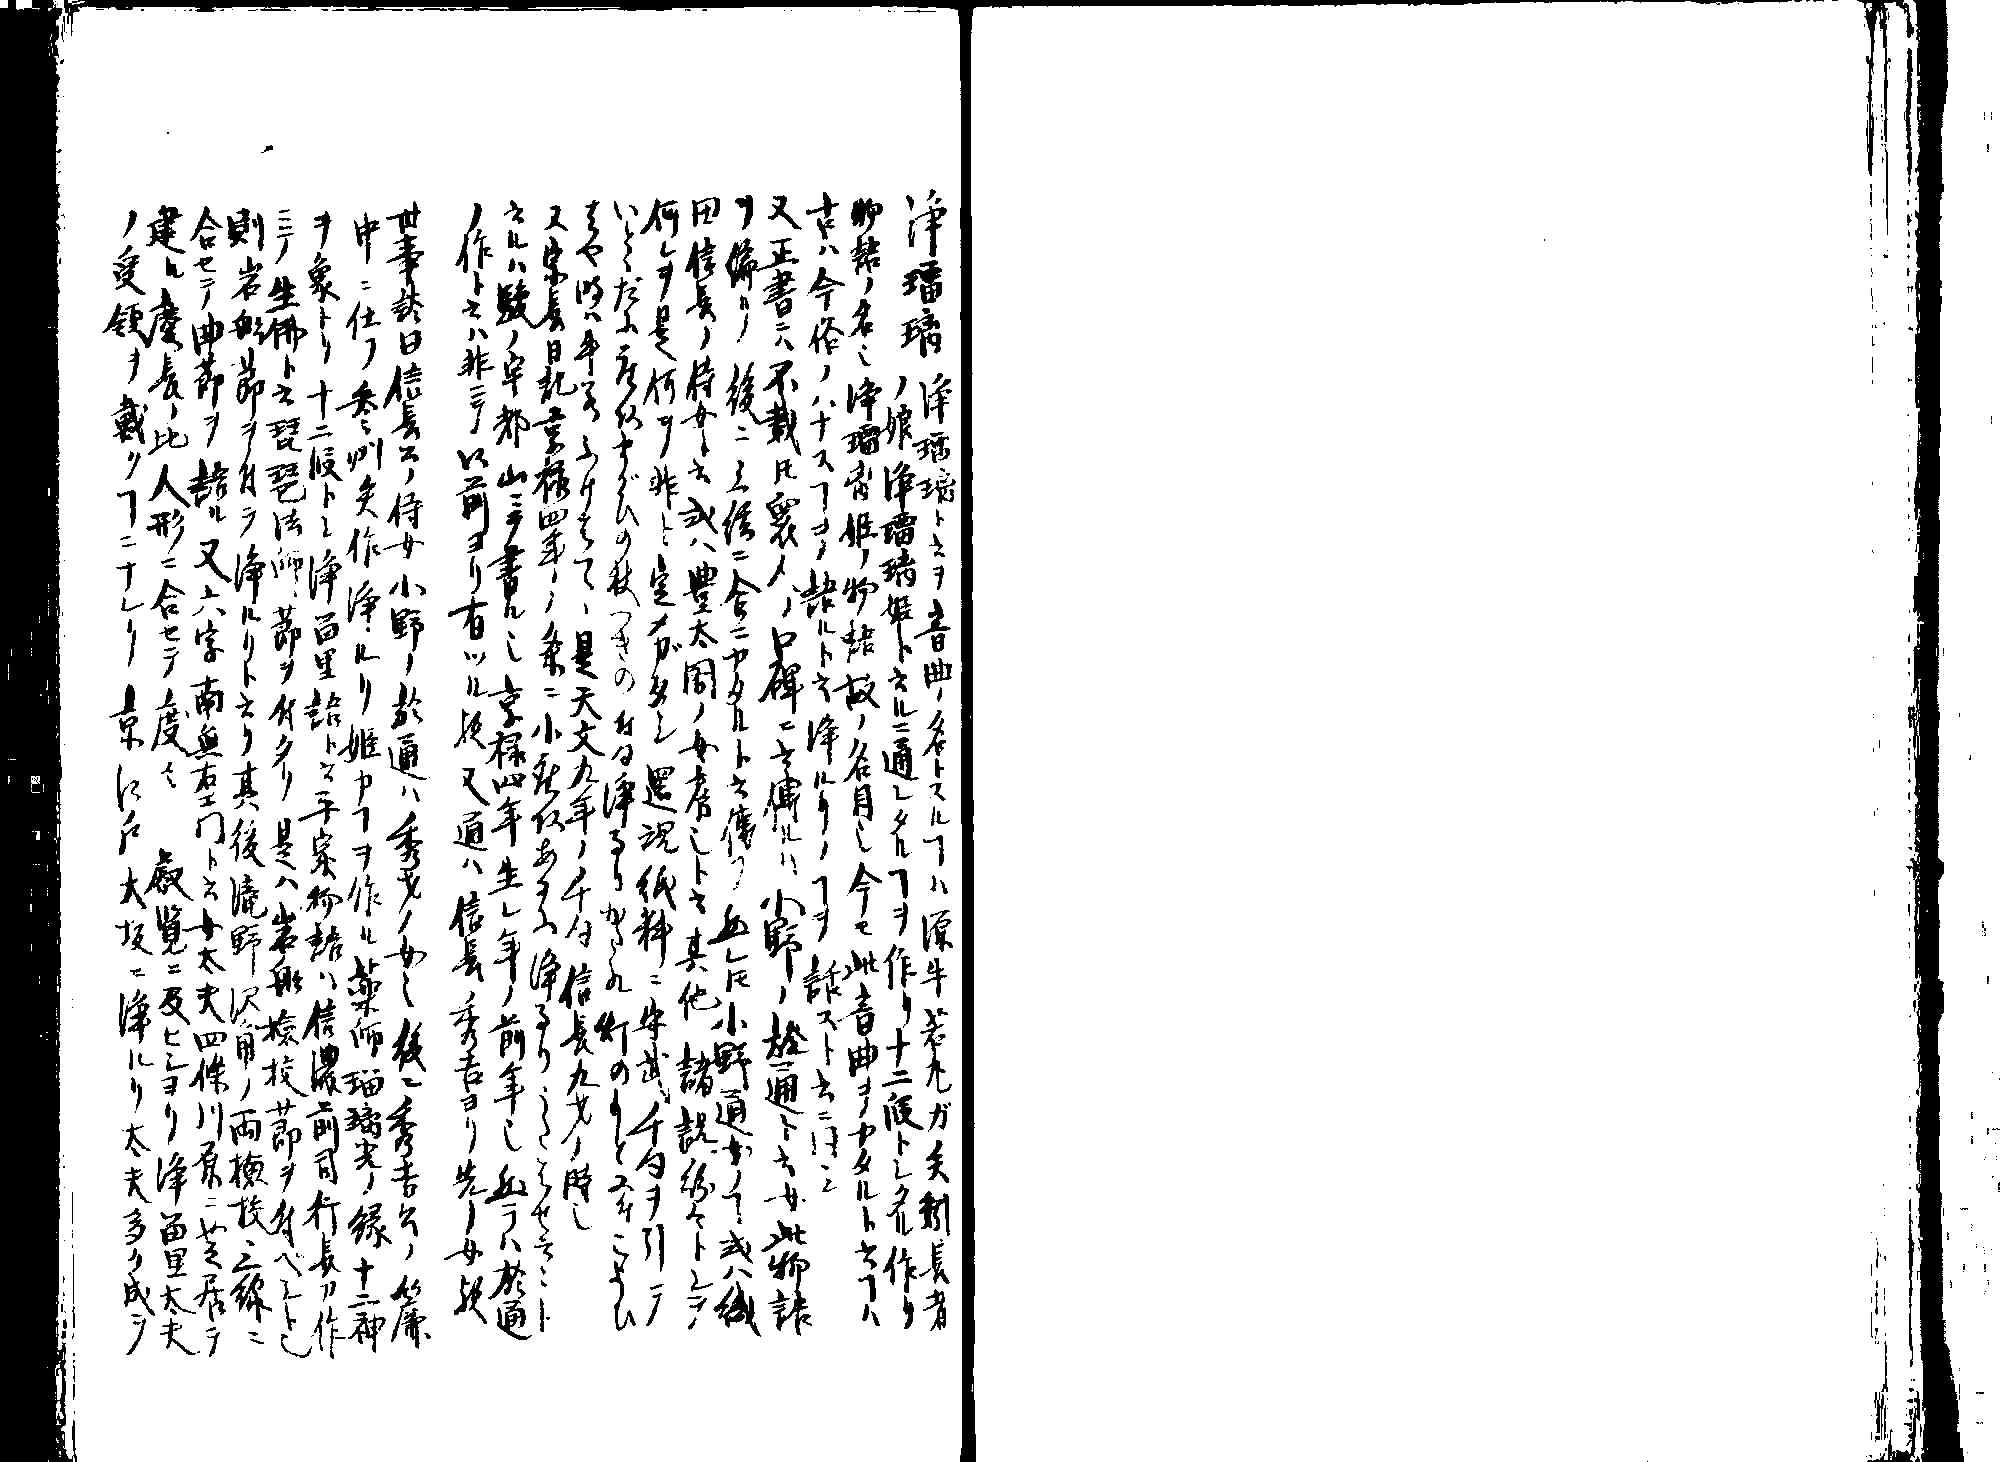 浄瑠璃　浄瑠璃ト云ヲ音曲ノ名トスルヿハ源牛若丸ガ矢矧長者
ノ娘浄瑠璃姫ト云ルニ通シタルヿヲ作リ十二段トシタル作リ
物語ノ名也浄瑠璃姫ノ物語故ノ名目也今モ此音曲ヲカタルト云フハ
古ハ今俗ノハナスヿヲ語ルト云浄ルリノヿヲ話スト云ニ同シ
又正書ニハ不載氏衆人ノ口碑ニ云傳ルハ小野ノ於通ト云女此物語
ヲ編リ後ニ三絃ニ合ニカタルト云傳フ然レ𪜈小野通女ノヿ或ハ織
田信長ノ侍女ト云或ハ豊太閤ノ女房也ト云其他諸説紛々トシテ
何レヲ是何ヲ非ト定メガタシ還魂紙料ニ守武千句ヲ引テ
いとくだふ座頭まがひの杖つきの　付句浄るりかたれ竹のもと
はや時ハ牛若ふけはてゝ是天文九年ノ千句信長九才ノ時也
又宗長日記享禄四年ノ条ニ小座頭あるに浄るりうたはせ云々ト
云ルハ駿ノ宇都山ニテ書ル也享禄四年生レ年ノ前年也然ラハ於通
ノ作ト云ハ非ニテ以前ヨリ有ツル歟又通ハ信長秀吉ヨリ先ノ女歟
世事談曰信長公ノ侍女小野ノ於通ハ秀才ノ女也後ニ秀吉公ノ簾
中ニ仕フ参州矢作浄ルリ姫カヿヲ作ル薬師瑠璃光ノ縁十二神
ヲ象トリ十二段トシ浄瑠里語ト云平家物語ハ信濃前司行長カ作
ニテ生佛ト云琵琶法師節ヲ付タリ是ハ岩船検校節ヲ付ベシト也
則岩船節ヲ付テ浄ルリト云リ其後滝野沢角ノ両検校三線ニ
合セテ曲節ヲ語ル又六字南無右エ門ト云女太夫四條川原ニ芝居ヲ
建ル慶長ノ比人形ニ合セテ度々　叡覧ニ及ヒシヨリ浄瑠里太夫
ノ受領ヲ戴クヿニナレリ京江戸大坂ニ浄ルリ太夫多ク成テ